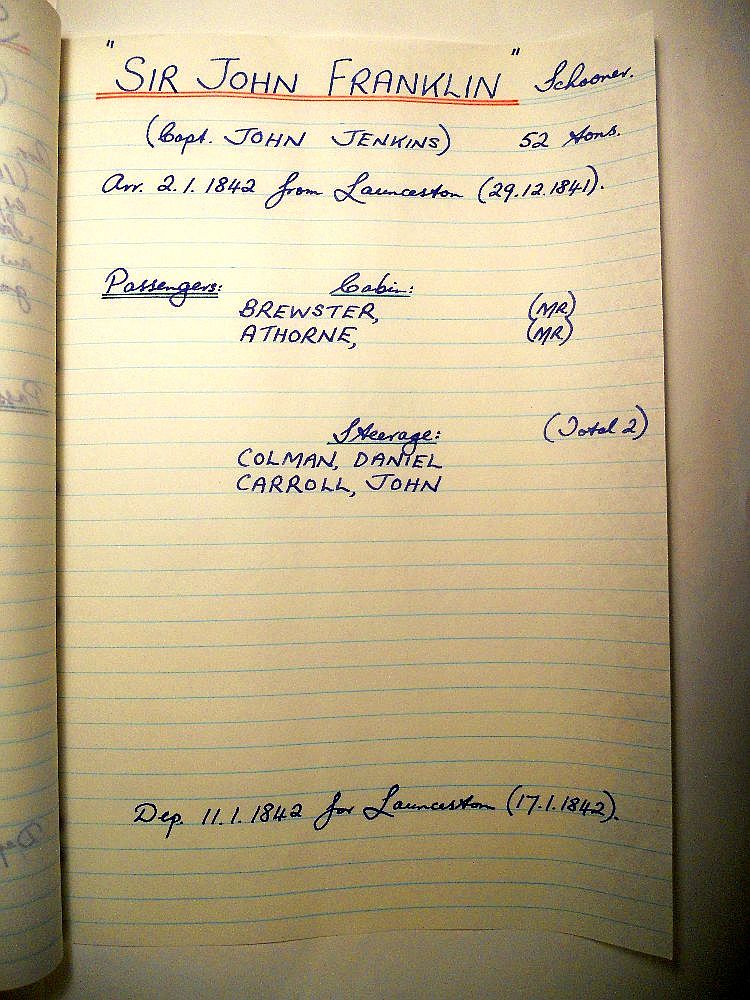 "SIR JOHN FRANKLIN" Schooner.
(Capt. JOHN JENKINS) 52 tons.
Arr. 2.1.1842 from Launceston (29.12.1841).
Passengers: Cabin:
BREWSTER, (MR)
ATHORNE, (MR)
Steerage: (Total 2)
COLMAN, DANIEL
CARROLL, JOHN
Dep. 11.1.1842 for Launceston (17.1.1842).